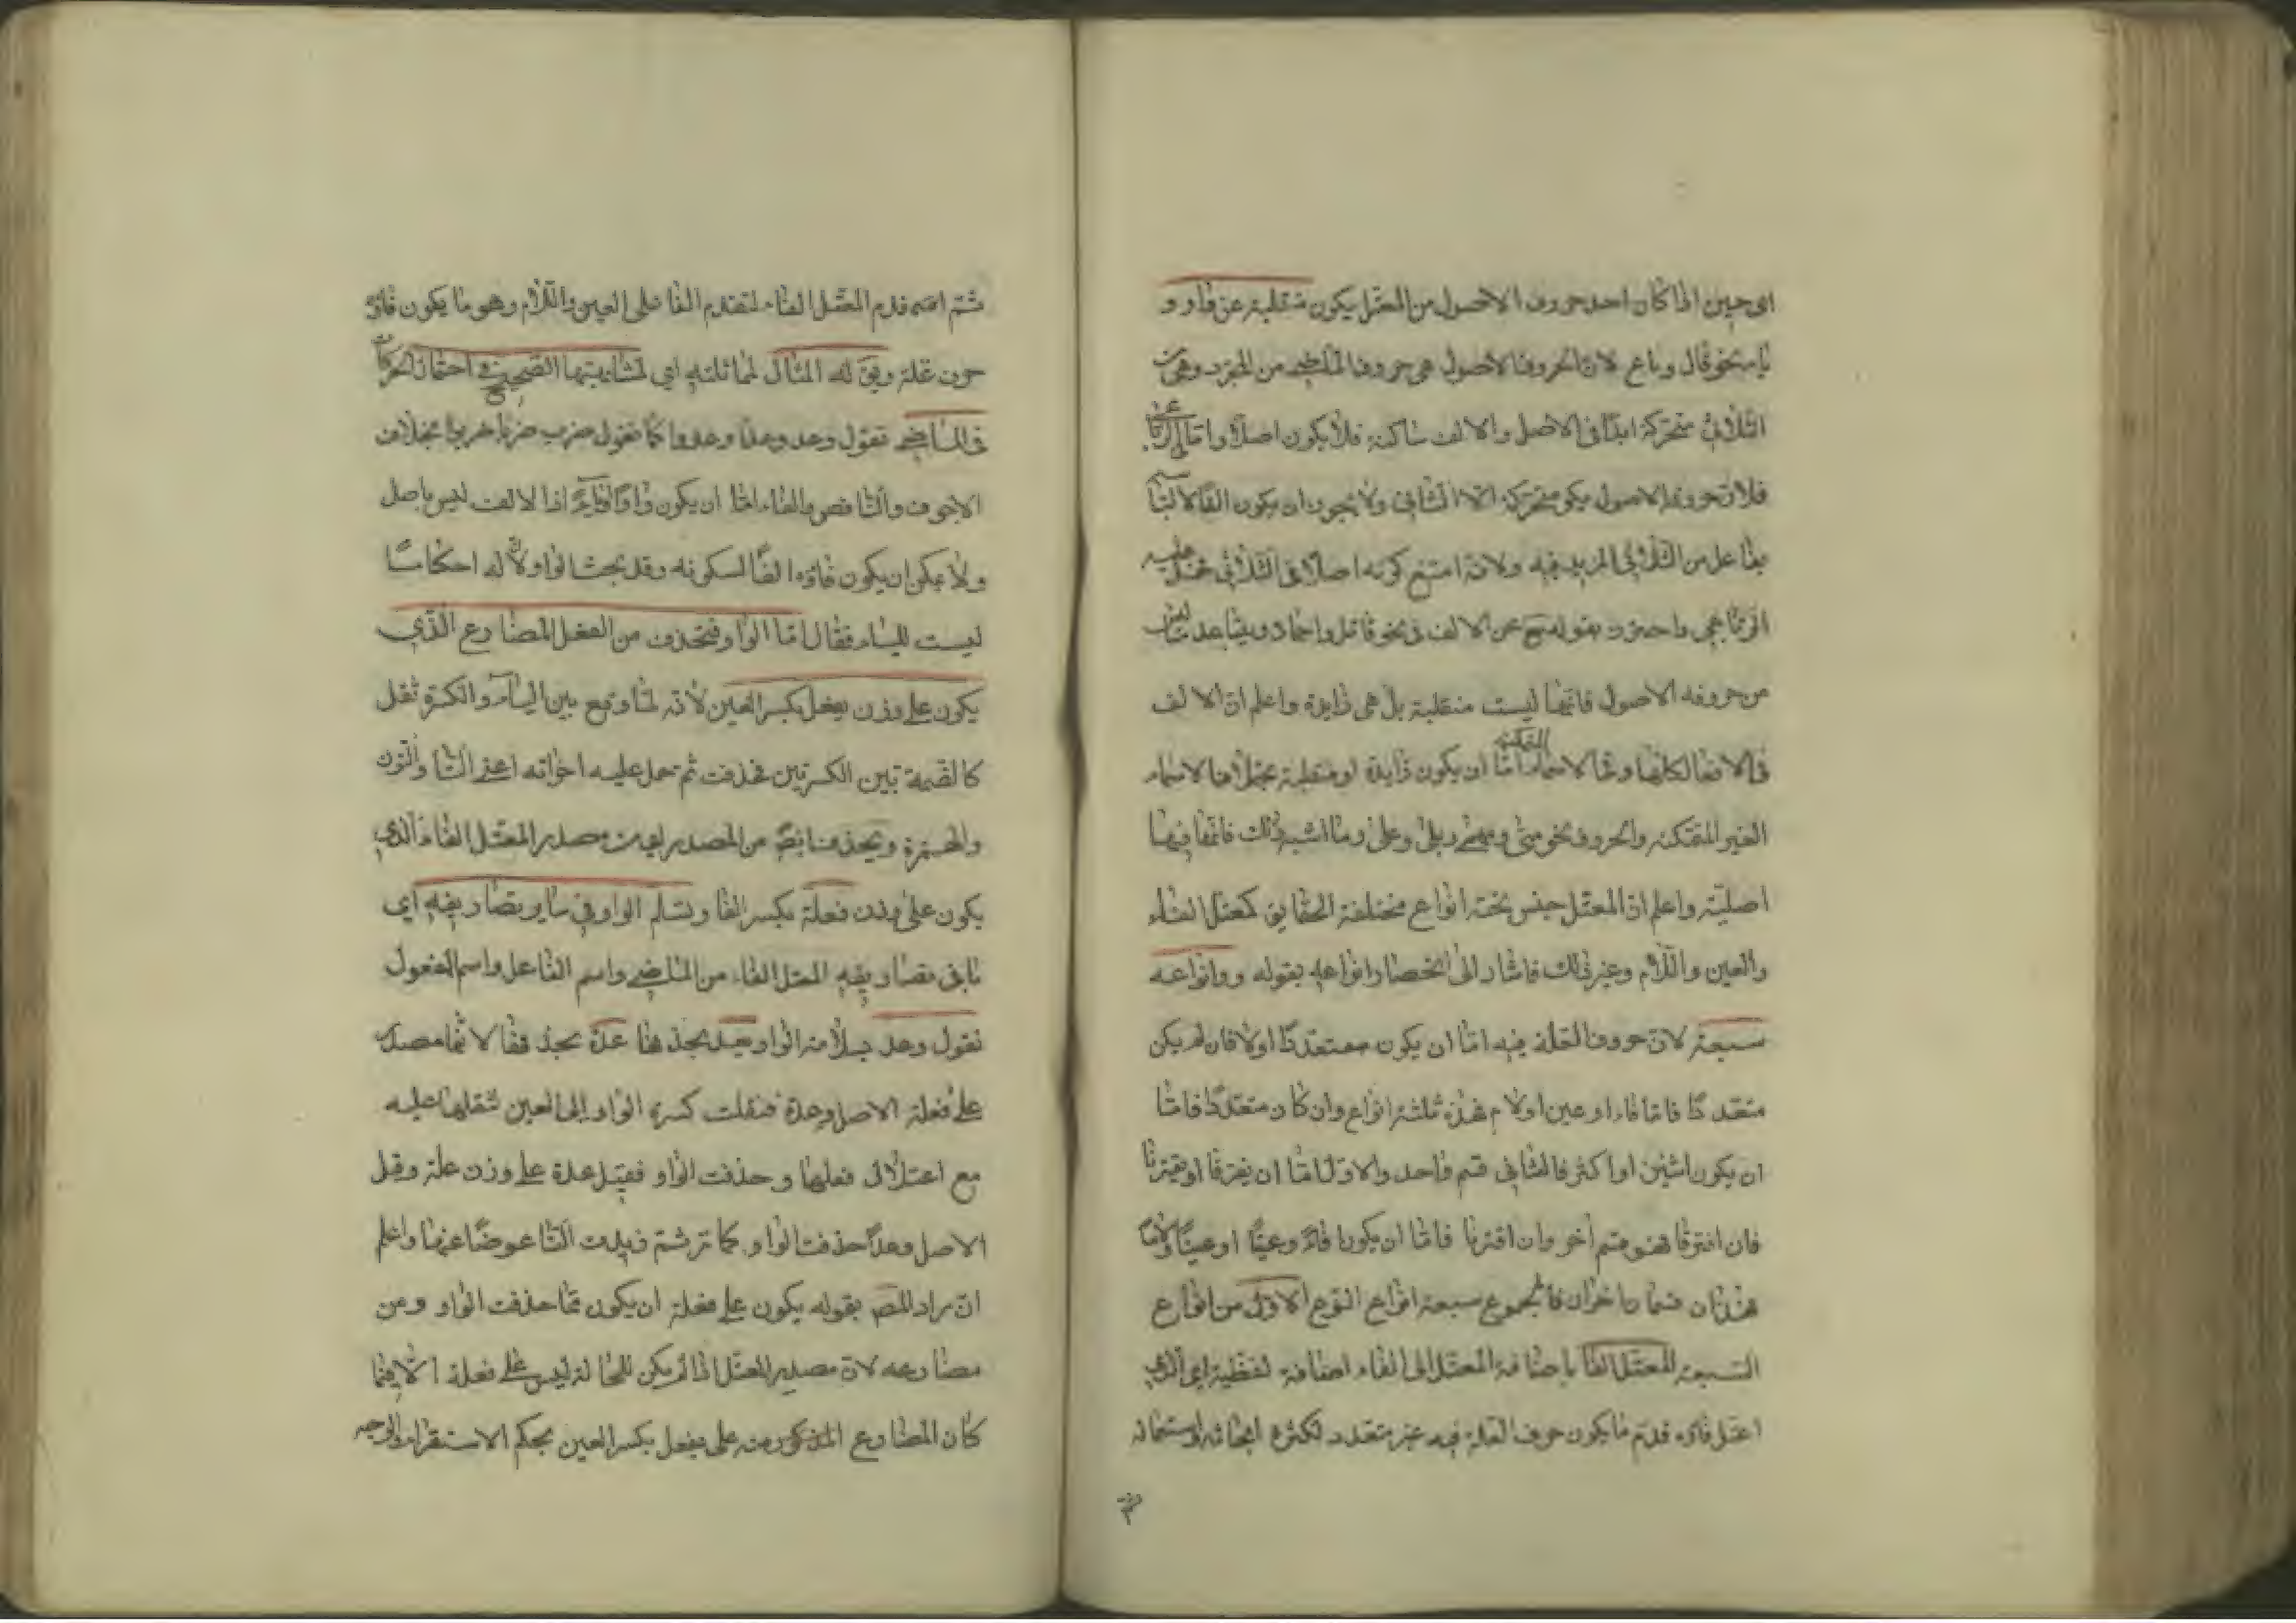 اى حين اذا كان احد حروف الاصول من المعتل يكون منقلبة عن واو و
ياء نحو قال وباع لان الحروف الاصول هى حروف الماضى من المجرد وهى من
الثلاثى متحركة ابدًا فى الاصل والالف ساكنة فلا يكون اصلًا واما الرباعى
فلان حروفه الاصول يكون متحركة الا الثانى ولا يجوز ان يكون الفًا لالتباسه
بفاعل من الثلاثى المزيد فيه ولانه امتنع كونه اصلا فى الثلاثى فحمل عليه
الرباعى واحترز بقوله ح عن الالف فى نحو قاتل واحمار وتباعد ليست
من حروفه الاصول فانها ليست منقلبة بل هى زايدة واعلم ان الالف
فى الافعال كلها وفى الاسماء المتمكنة اما ان يكون زايدة او منقلبة بخلاف الاسماء
الغير المتمكنه والحروف نحو متى ومهما وبلى وعلى وما اشبه ذلك فانها فيها
اصلية واعلم ان المعتل جنس تحته انواع مختلفة الحقايق كمعتل الفاء
والعين واللام وغير ذلك فاشار الى انحصار انواعه بقوله وانواعه
سبعة لان حروف العلة فيه اما ان يكون متعددًا اولا فان لم يكن
متعددًا فاما فاء او عين او لام فهذه ثلثة انواع وان كان متعددًا فاما
ان يكون اثنين او اكثر فالثانى قسم واحد والاول اما ان يفترقا او يقترنا
فان افترقا فهو قسم آخر وان اقترنا فاما ان يكونا فاءً وعينًا او عينًا ولامًا
فهذان قسمان اخران فالمجموع سبعة انواع النوع الاول من انواع
السبعة المعتل الفاء باضافة المعتل الى الفاء اضافة لفظية اى الذى
اعتل فاؤه قدم ما يكون حرف العلة فيه غير متعدد لكثرة ابحاثه واستعماله
ثم
ثم انه قدم المعتل الفاء لتقدم الفا على العين واللام وهو ما يكون فاؤه
حرف علة ويق له المثال لمماثلته اى لمشابهتها الصحيح فى احتمال الحركات
فى الماضى تقول وعد وعدا وعدوا كما تقول ضرب ضربا ضربوا بخلاف
الاجوف والناقص والفاء اما ان يكون واوًا او ياءً اذا لالف ليس باصل
ولا يمكن ان يكون فاؤه الفًا لسكونه وقدم بحث الواو لان له احكاما
ليست للياء فقال اما الواو فتحذف من الفعل المضارع الذى
يكون على وزن يفعل بكسر العين لانه لما وقع بين الياء والكسرة ثقل
كالضمة بين الكسرتين فحذفت ثم حمل عليه اخواته اعنى التا والنون
والهمزة وتحذف ايضا من المصدر اى من مصدر المعتل الفاء الذى
يكون على وزن فعلة بكسر الفا وتسلم الواو فى ساير تصاريفه اى
باقى تصاريفه المعتل الفاء من الماضى واسم الفاعل واسم المفعول
تقول وعد بسلامة الواو يعد بحذفها عدة بحذفها لانها مصدر
على فعلة الاصل وعدة فنقلت كسرة الواو الى العين لثقلها عليه
مع اعتلال فعلها وحذفت الواو فقيل عدة على وزن علة وقيل
الاصل وعدًا حذفت الواو كما مر ثم زيدت التا عوضًا عنها واعلم
ان مراد المص بقوله يكون على فعلة ان يكون مما حذفت الواو ومن
مضارعه لان مصدر المعتل اذا لم يكن للحالة ليس على فعلة الا فيما
كان المضارع المذكور منه على يفعل بكسر العين بحكم الاستقراء والوجه